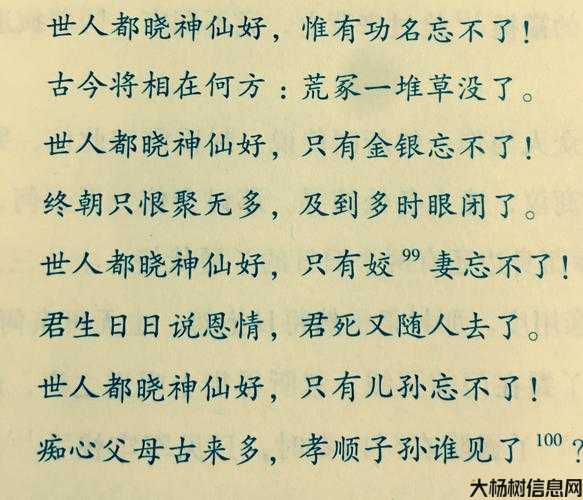 世人都晓神仙好，惟有功名忘不了！
古今将相在何方：荒冢一堆草没了。
世人都晓神仙好，只有金银忘不了！
终朝只恨聚无多，及到多时眼闭了。
世人都晓神仙好，只有姣99妻忘不了！
君生日日说恩情，君死又随人去了。
世人都晓神仙好，只有儿孙忘不了！
痴心父母古来多，孝顺子孙谁见了100？
大杨树信息网